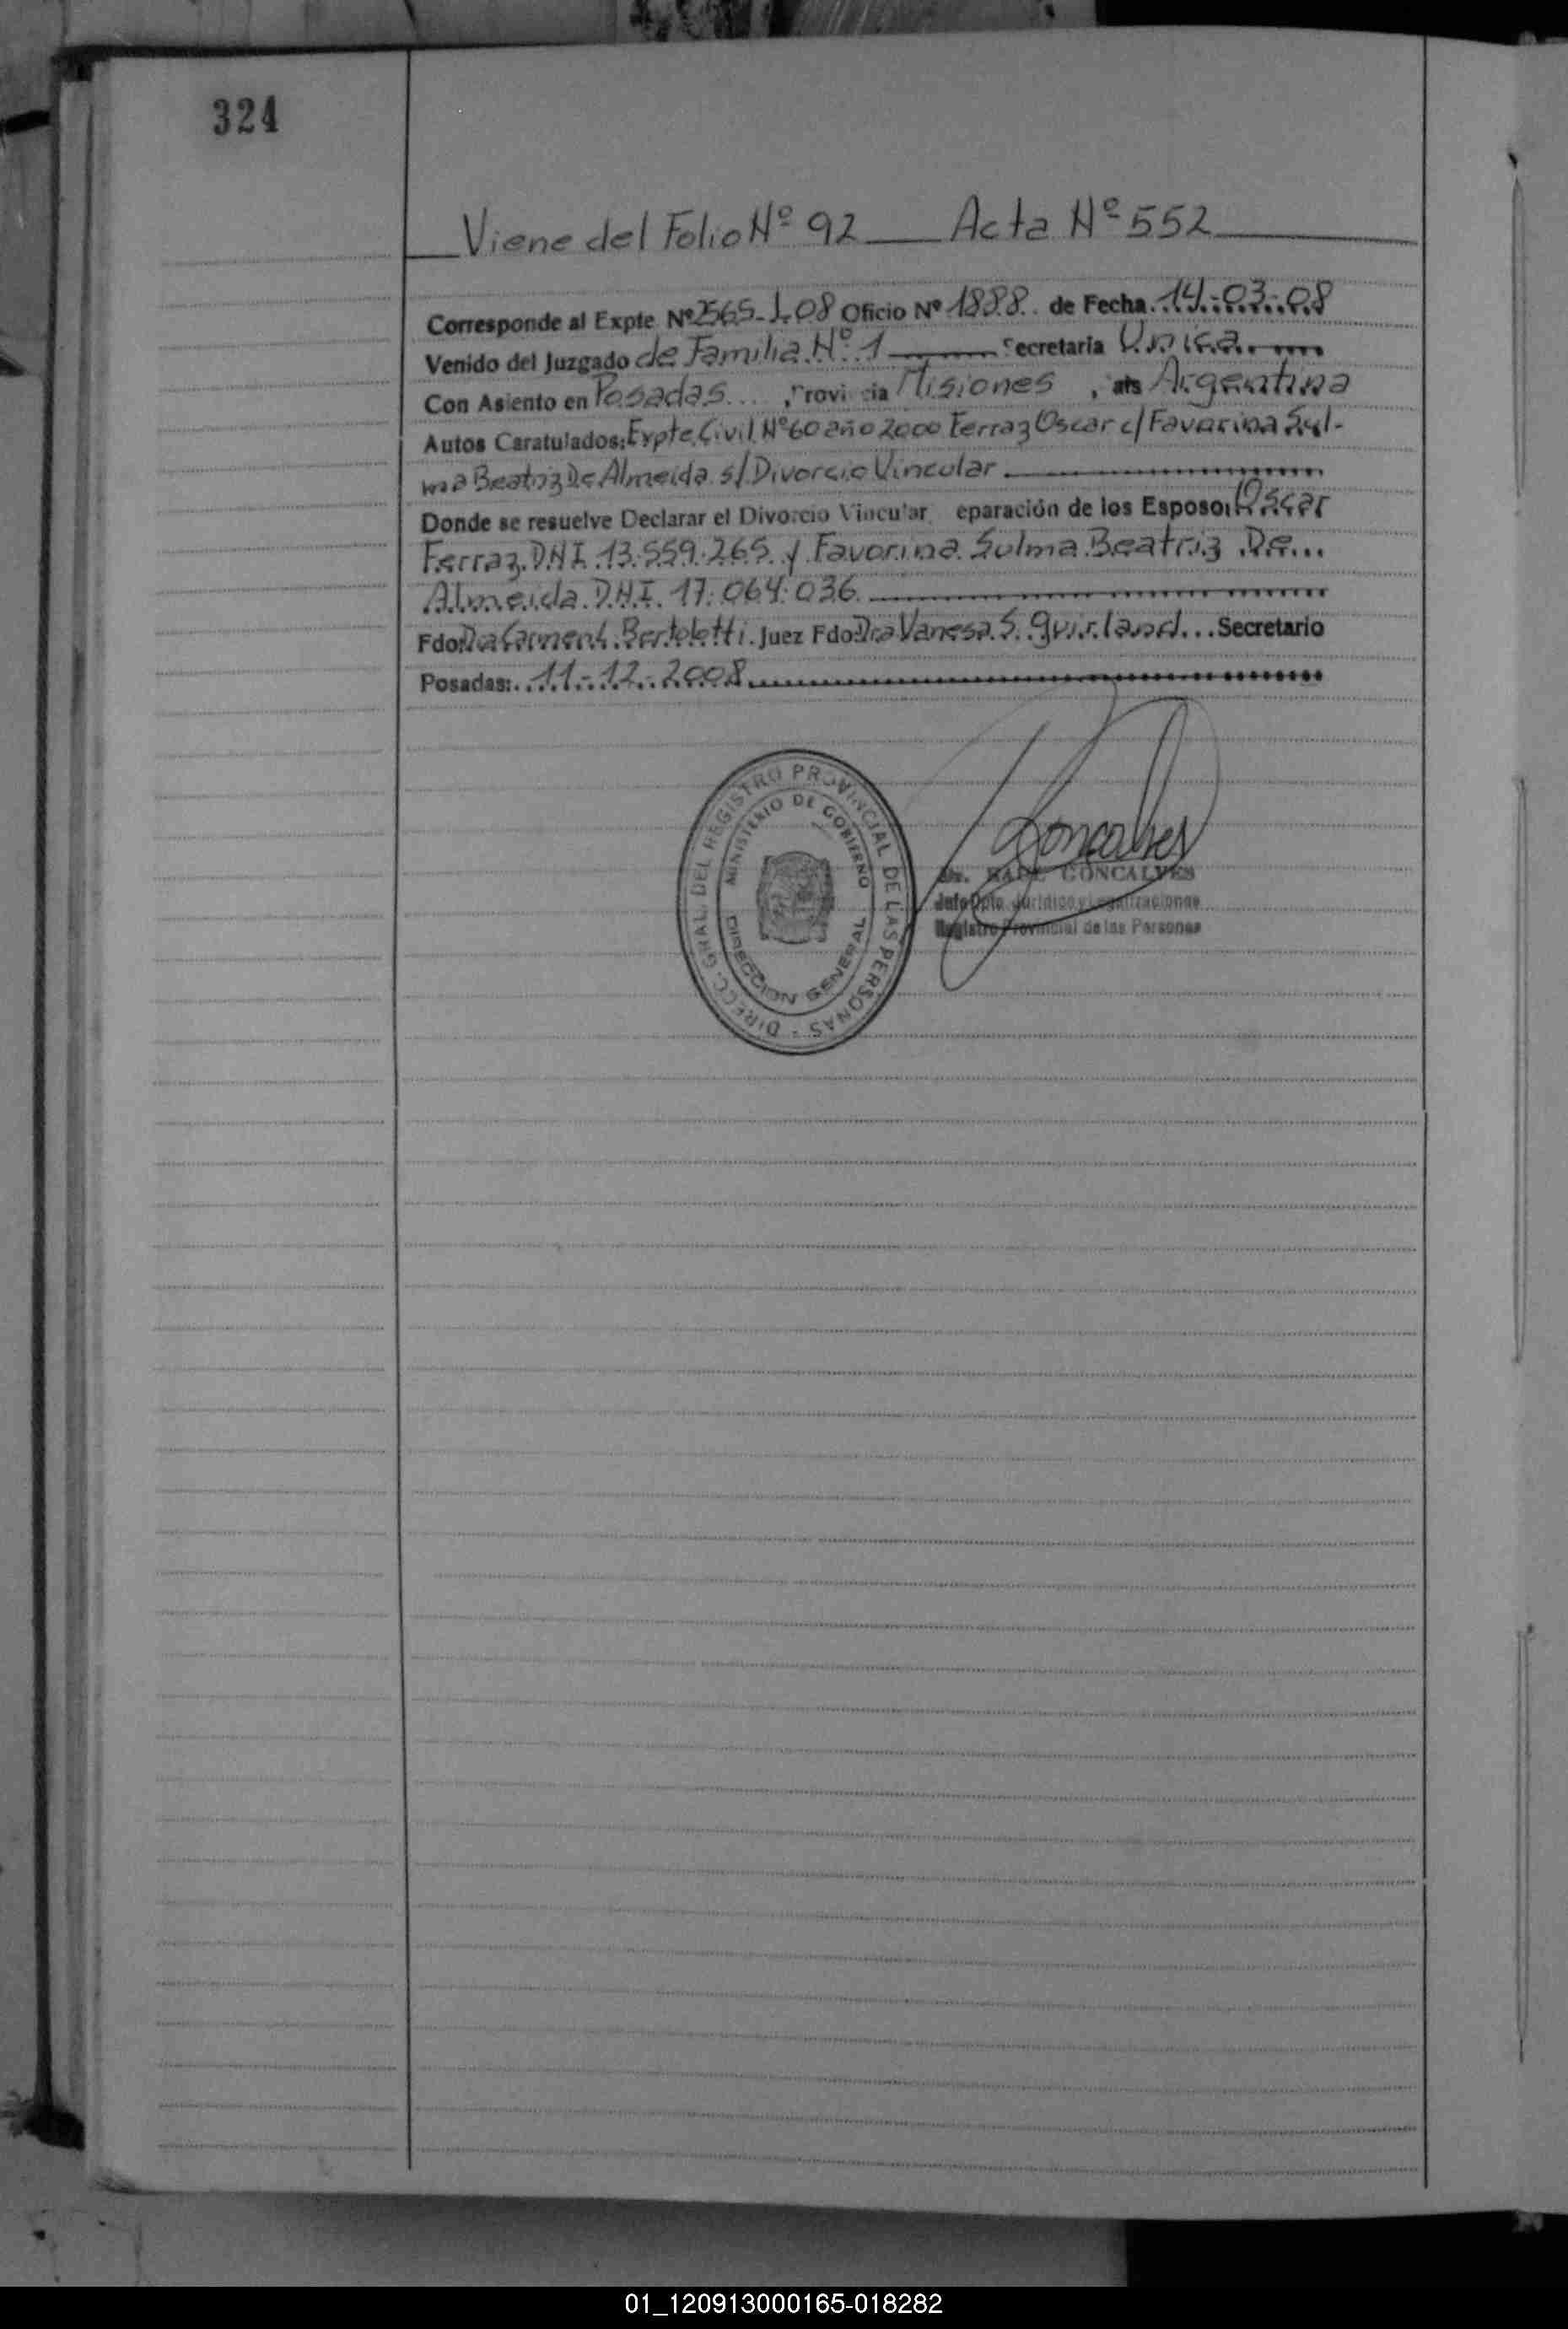 324
Viene del Folio Nº 92 Acta Nº 552
Corresponde al Expte Nº 2565-J-08 Oficio Nº 1888 de Fecha 14-03-08
Venido del Juzgado de Familia Nº 1 ecretaria Unica
Con Asiento en Posadas, Provincia Misiones, ais Argentina
Autos Caratulados: Expte. Civil Nº 60 año 2000 Ferraz Oscar c/ Favorina Sul-
ma Beatriz De Almeida s/ Divorcio Vincular
Donde se resuelve Declarar el Divorcio Vincular eparación de los Esposos Oscar
Ferraz D.N.I. 13.559.265 y Favorina Sulma Beatriz De
Almeida D.N.I. 17.064.036
Fdo: Dra Carmen Bertolotti Juez Fdo: Dra Vanesa S. Guirland Secretario
Posadas: 11-12-2008
DIRECC. GRAL. DEL REGISTRO PROVINCIAL DE LAS PERSONAS -
MINISTERIO DE GOBIERNO
DIRECCION GENERAL
Goncalves
Dr. RAUL GONCALVES
Jefe Dpto. Jurídico y Legalizaciones
Registro Provincial de las Personas
01_120913000165-018282